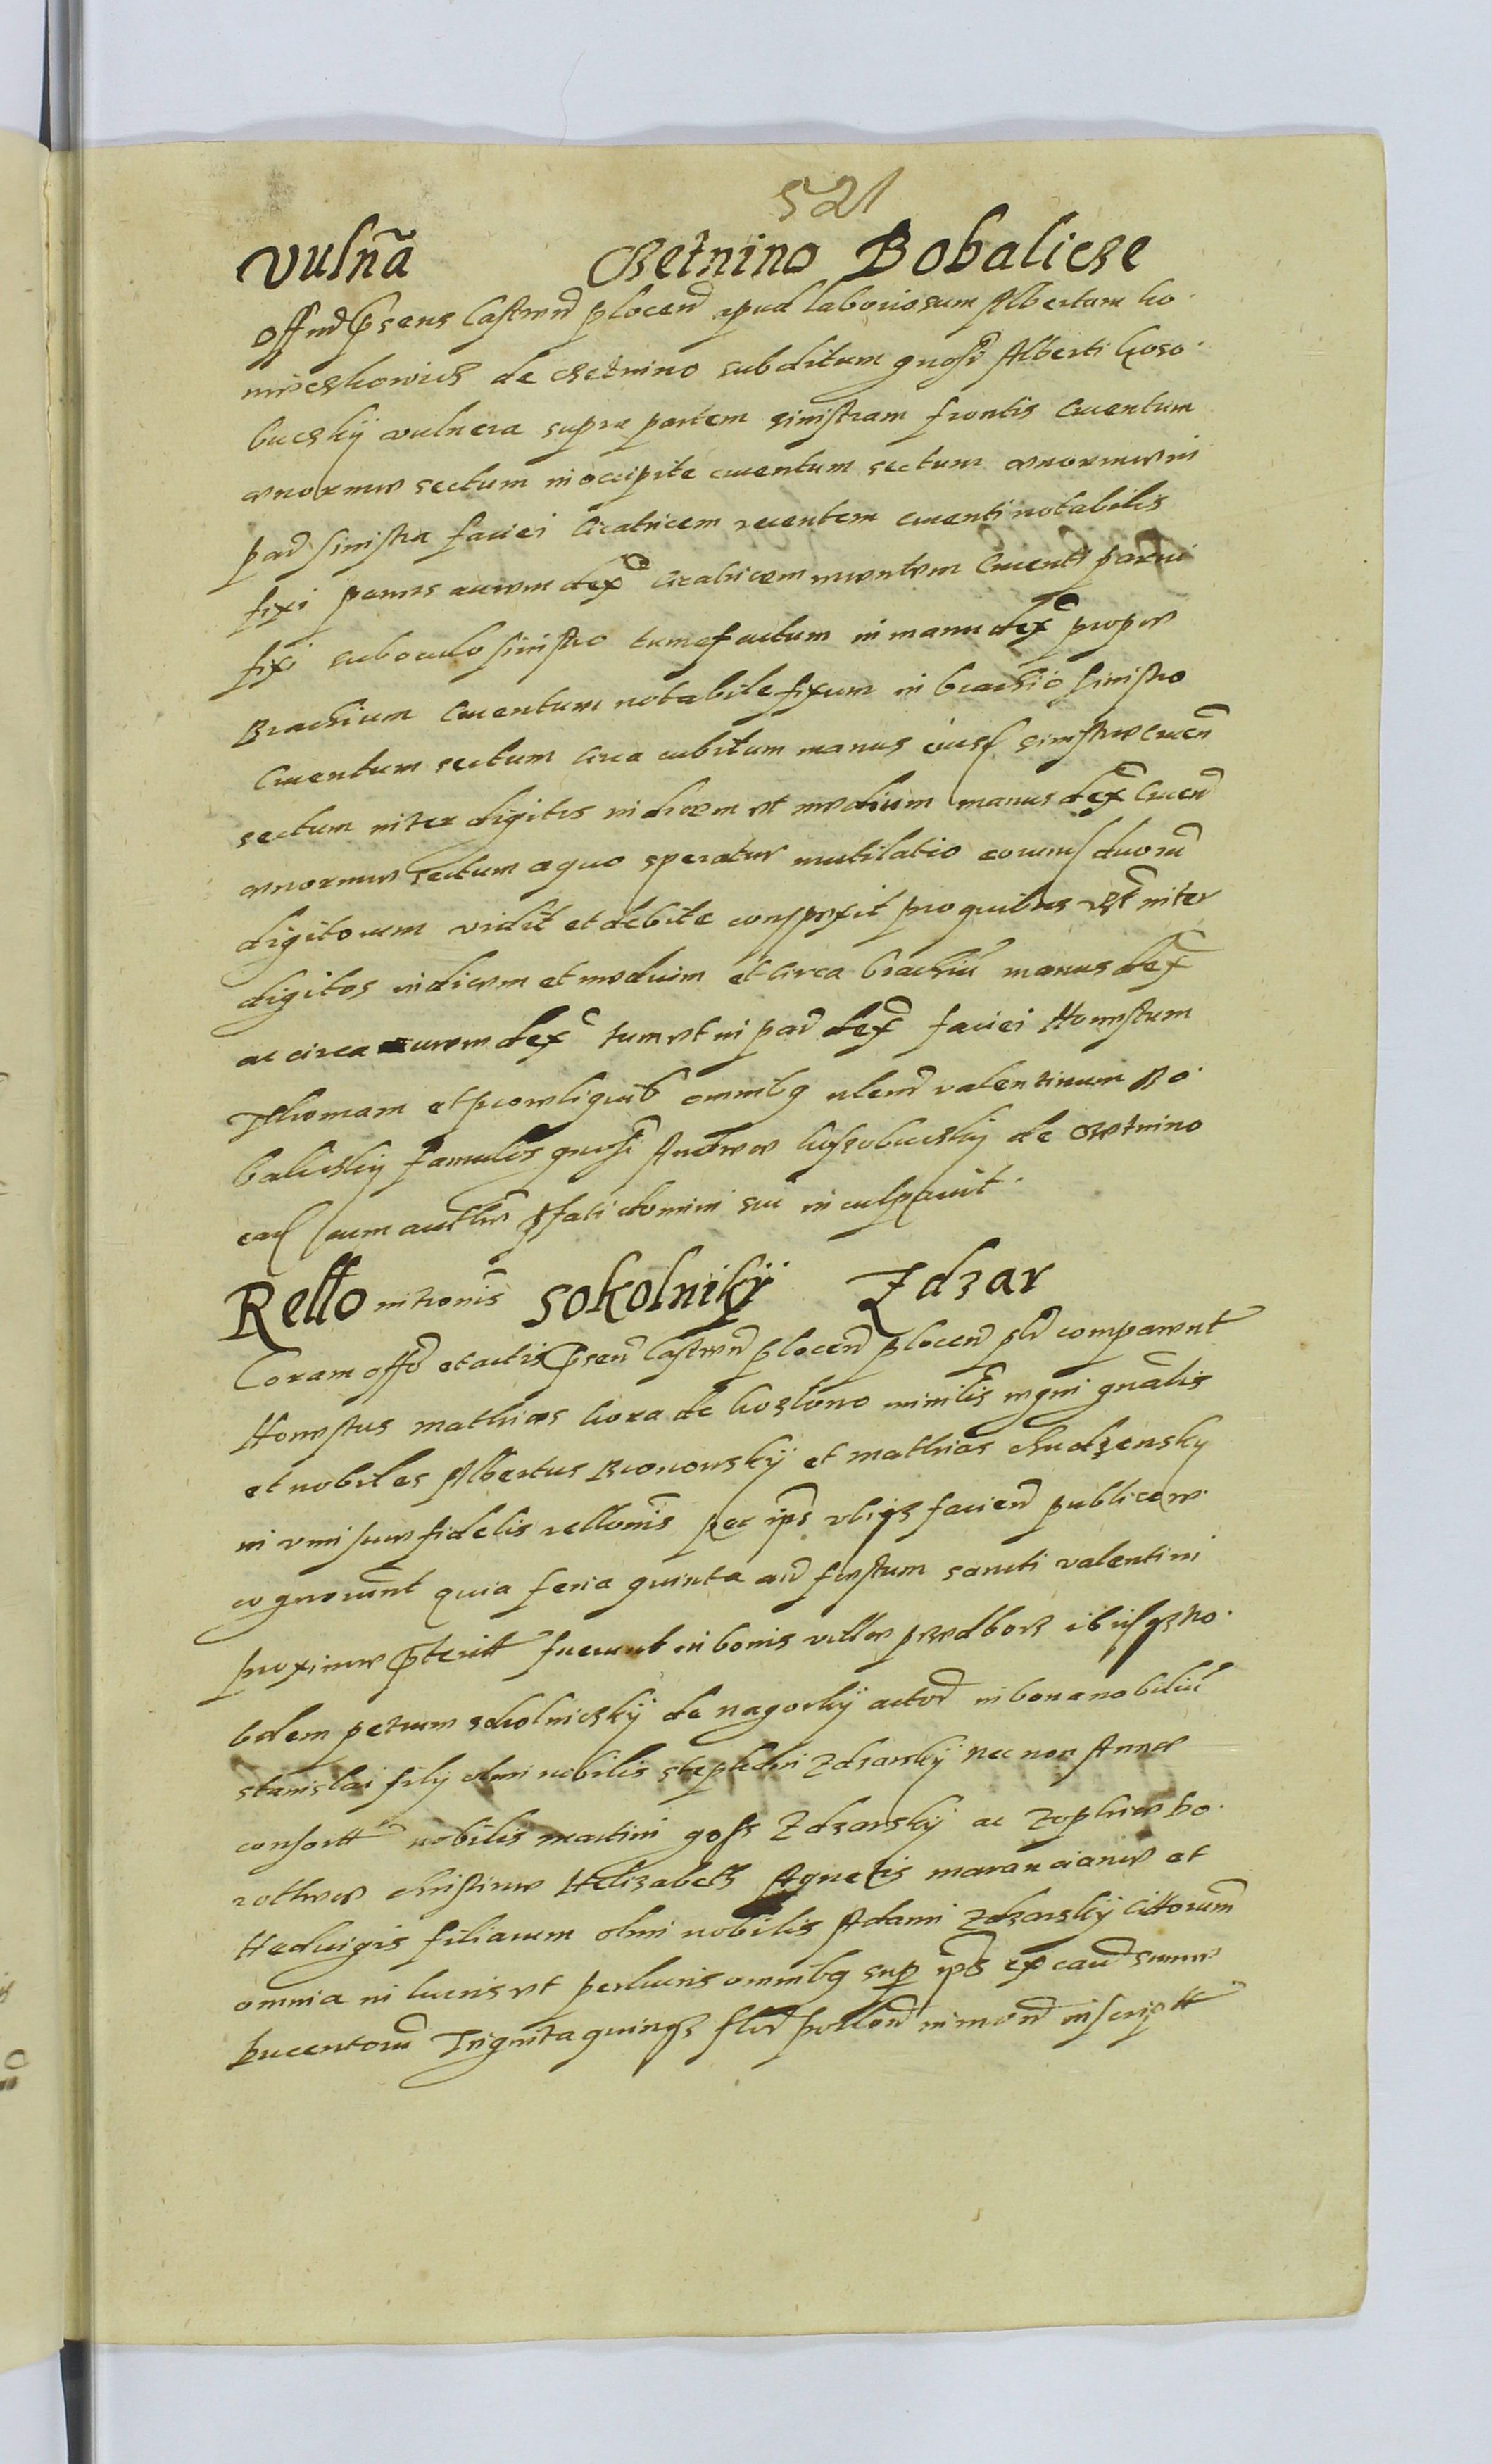 521
Vulnã Chetnino Bobalicze
Offm̃ p̃sens Castren̄ plocen̄ apud laboriosum Albertum ko-
mieczkowicz de chetnino subditum gnosi Alberti koso-
buczkÿ vulnera supra partem sinistram frontis cruentum
enorme sectum in occipite cruentum sectum enorme in
par̄ sinistra faciei cicatricem recentem cruenti notabilis
fixi penes aurem dex̄ cicatricem recentem cruenti parui
fixi sub oculo sinistro tumefactum in manu dex̄ prope
Brachium cruentum notabile fixum in brachio sinistro
cruentum sectum circa cubitum manus eius sinistre cruen̄
sectum inter digitos indicem et medium manus dex̄ cruen̄
enorme sectum a quo speratur mutilatio eorum duorum̄
digitorum vidit et debite conspexit pro quibus inter
digitos indicem et medium et circa brachiū manus dex̄
ac circa aurem dex̄ tum et in par̄ dex̄ faciei Honestum
Thomam et pro reliquis omnibg vlen̄ valentinum Bo-
baliczky famulos gnosi Andree kossobuczkÿ de chetnino
cum auth̄re p̃fati domini sui inculpauit.
Rello intronis̄ Sokolnikÿ Zdzar
Coram offō et actis p̃sen̄ Castren̄ plocen̄ plocen̄ comparent̄
Honestus mathias kora de kozlowo minilis̄ regni gnālis
et nobiles Albertus Bronowskÿ et mathias chudzensky
in vim sue fidelis rellonis̄ per ip̄s faciend̄ publice re-
cognorunt̄ quia feria quinta an̄ festum sancti valentini
proxime p̃terit fuerunt in bonis ville przedborz ibiqz no-
bilem petrum sokolniczkÿ de nagorkÿ actor̄ in bona nobiliū
stanislai filÿ olim nobilis stephani Zdzarskÿ nec non Anne
consortt nobilis martini Zdzarskÿ ac Zophie ho-
rothee christine Helizabeth Agnetis marancianne et
Heduigis filiarum olim nobilis Adami Zdzarskÿ cittorum̄
omnia in lucris et perlucris omnibg sup ip̄s ex cau̇ summe
ducentorū Triginta quinqz flor̄ pollon̄ in inscriptt